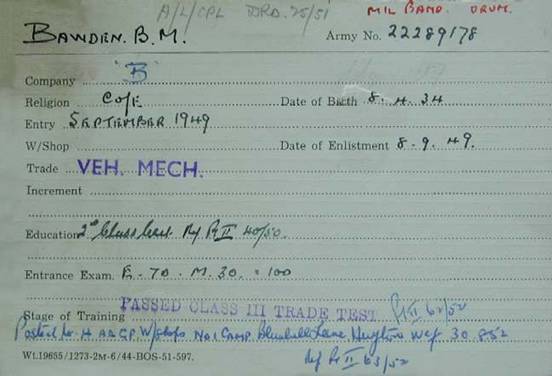 A/L/CPL DRD. 25/51 MIL BAND. DRUM.
BAWDEN. B. M. Army No. 22289178
Company "B"
Religion C of E Date of Birth 8. 4. 34
Entry SEPTEMBER 1949
W/Shop Date of Enlistment 8-9.49.
Trade VEH. MECH.
Increment
Education 2nd Class Cert. Ref Pt II 40/50.
Entrance Exam. E. 70. M. 30. = 100
Stage of Training PASSED CLASS III TRADE TEST Pt II 62/52
Posted to H W/Shops No 1 Camp Bluebell Lane Huyton wef 30 8 52
Ref Pt II 63/52
Wt.19655/1273-2M-6/44-BOS-51-597.